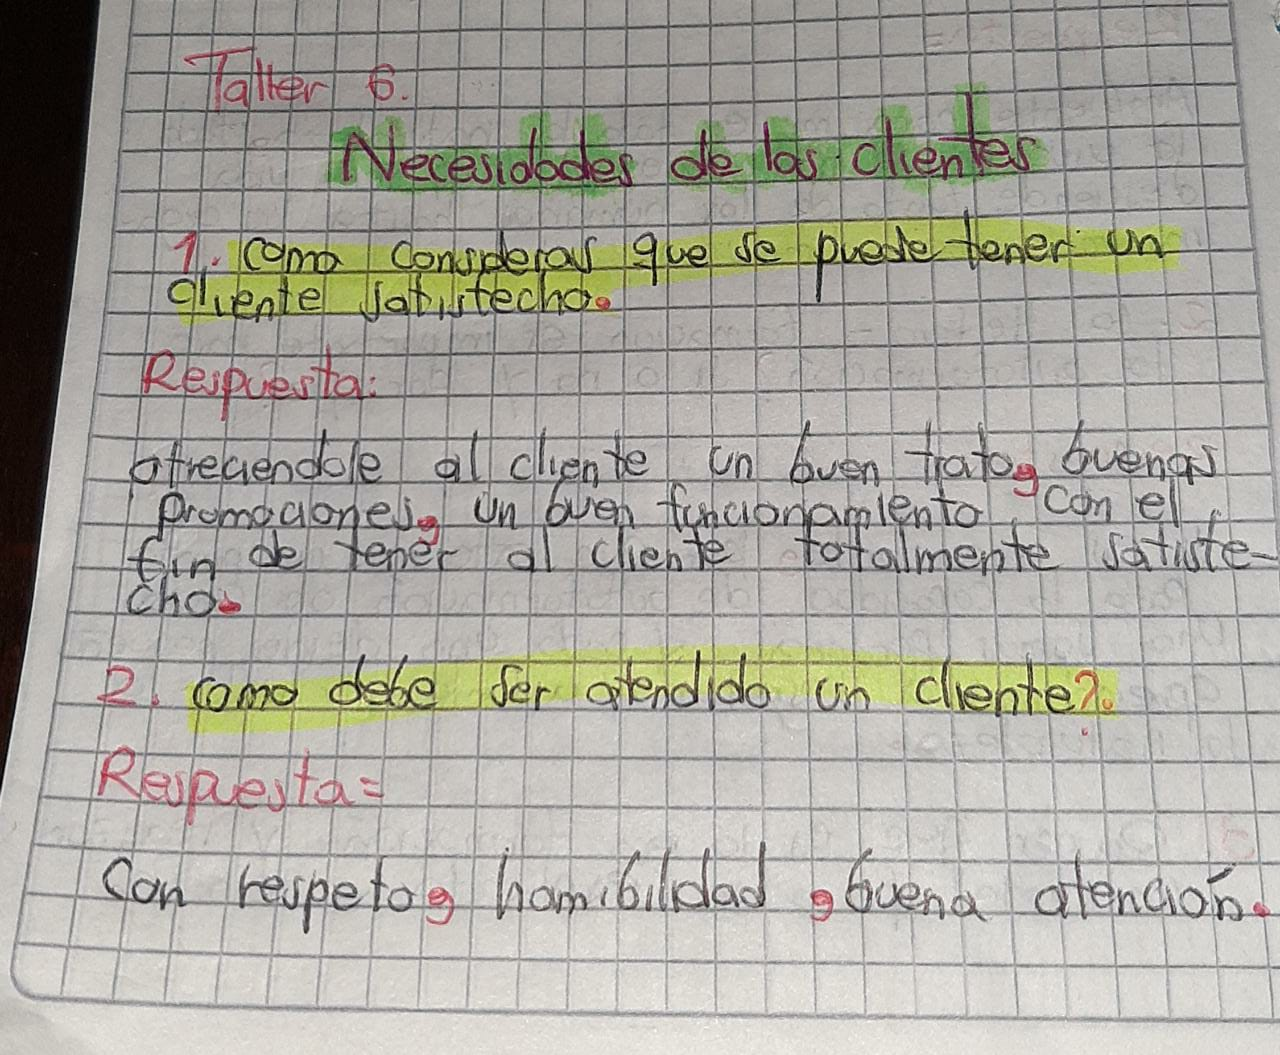 Taller 6.
Necesidades de los clientes
1. como consideras que se puede tener un
cliente satisfecho.
Respuesta:
ofreciendole al cliente un buen trato, buenas
promociones, un buen funcionamiento, con el
fin de tener al cliente totalmente satisfe-
cho.
2. como debe ser atendido un cliente?.
Respuesta=
Con respeto, hamibilidad, buena atención.